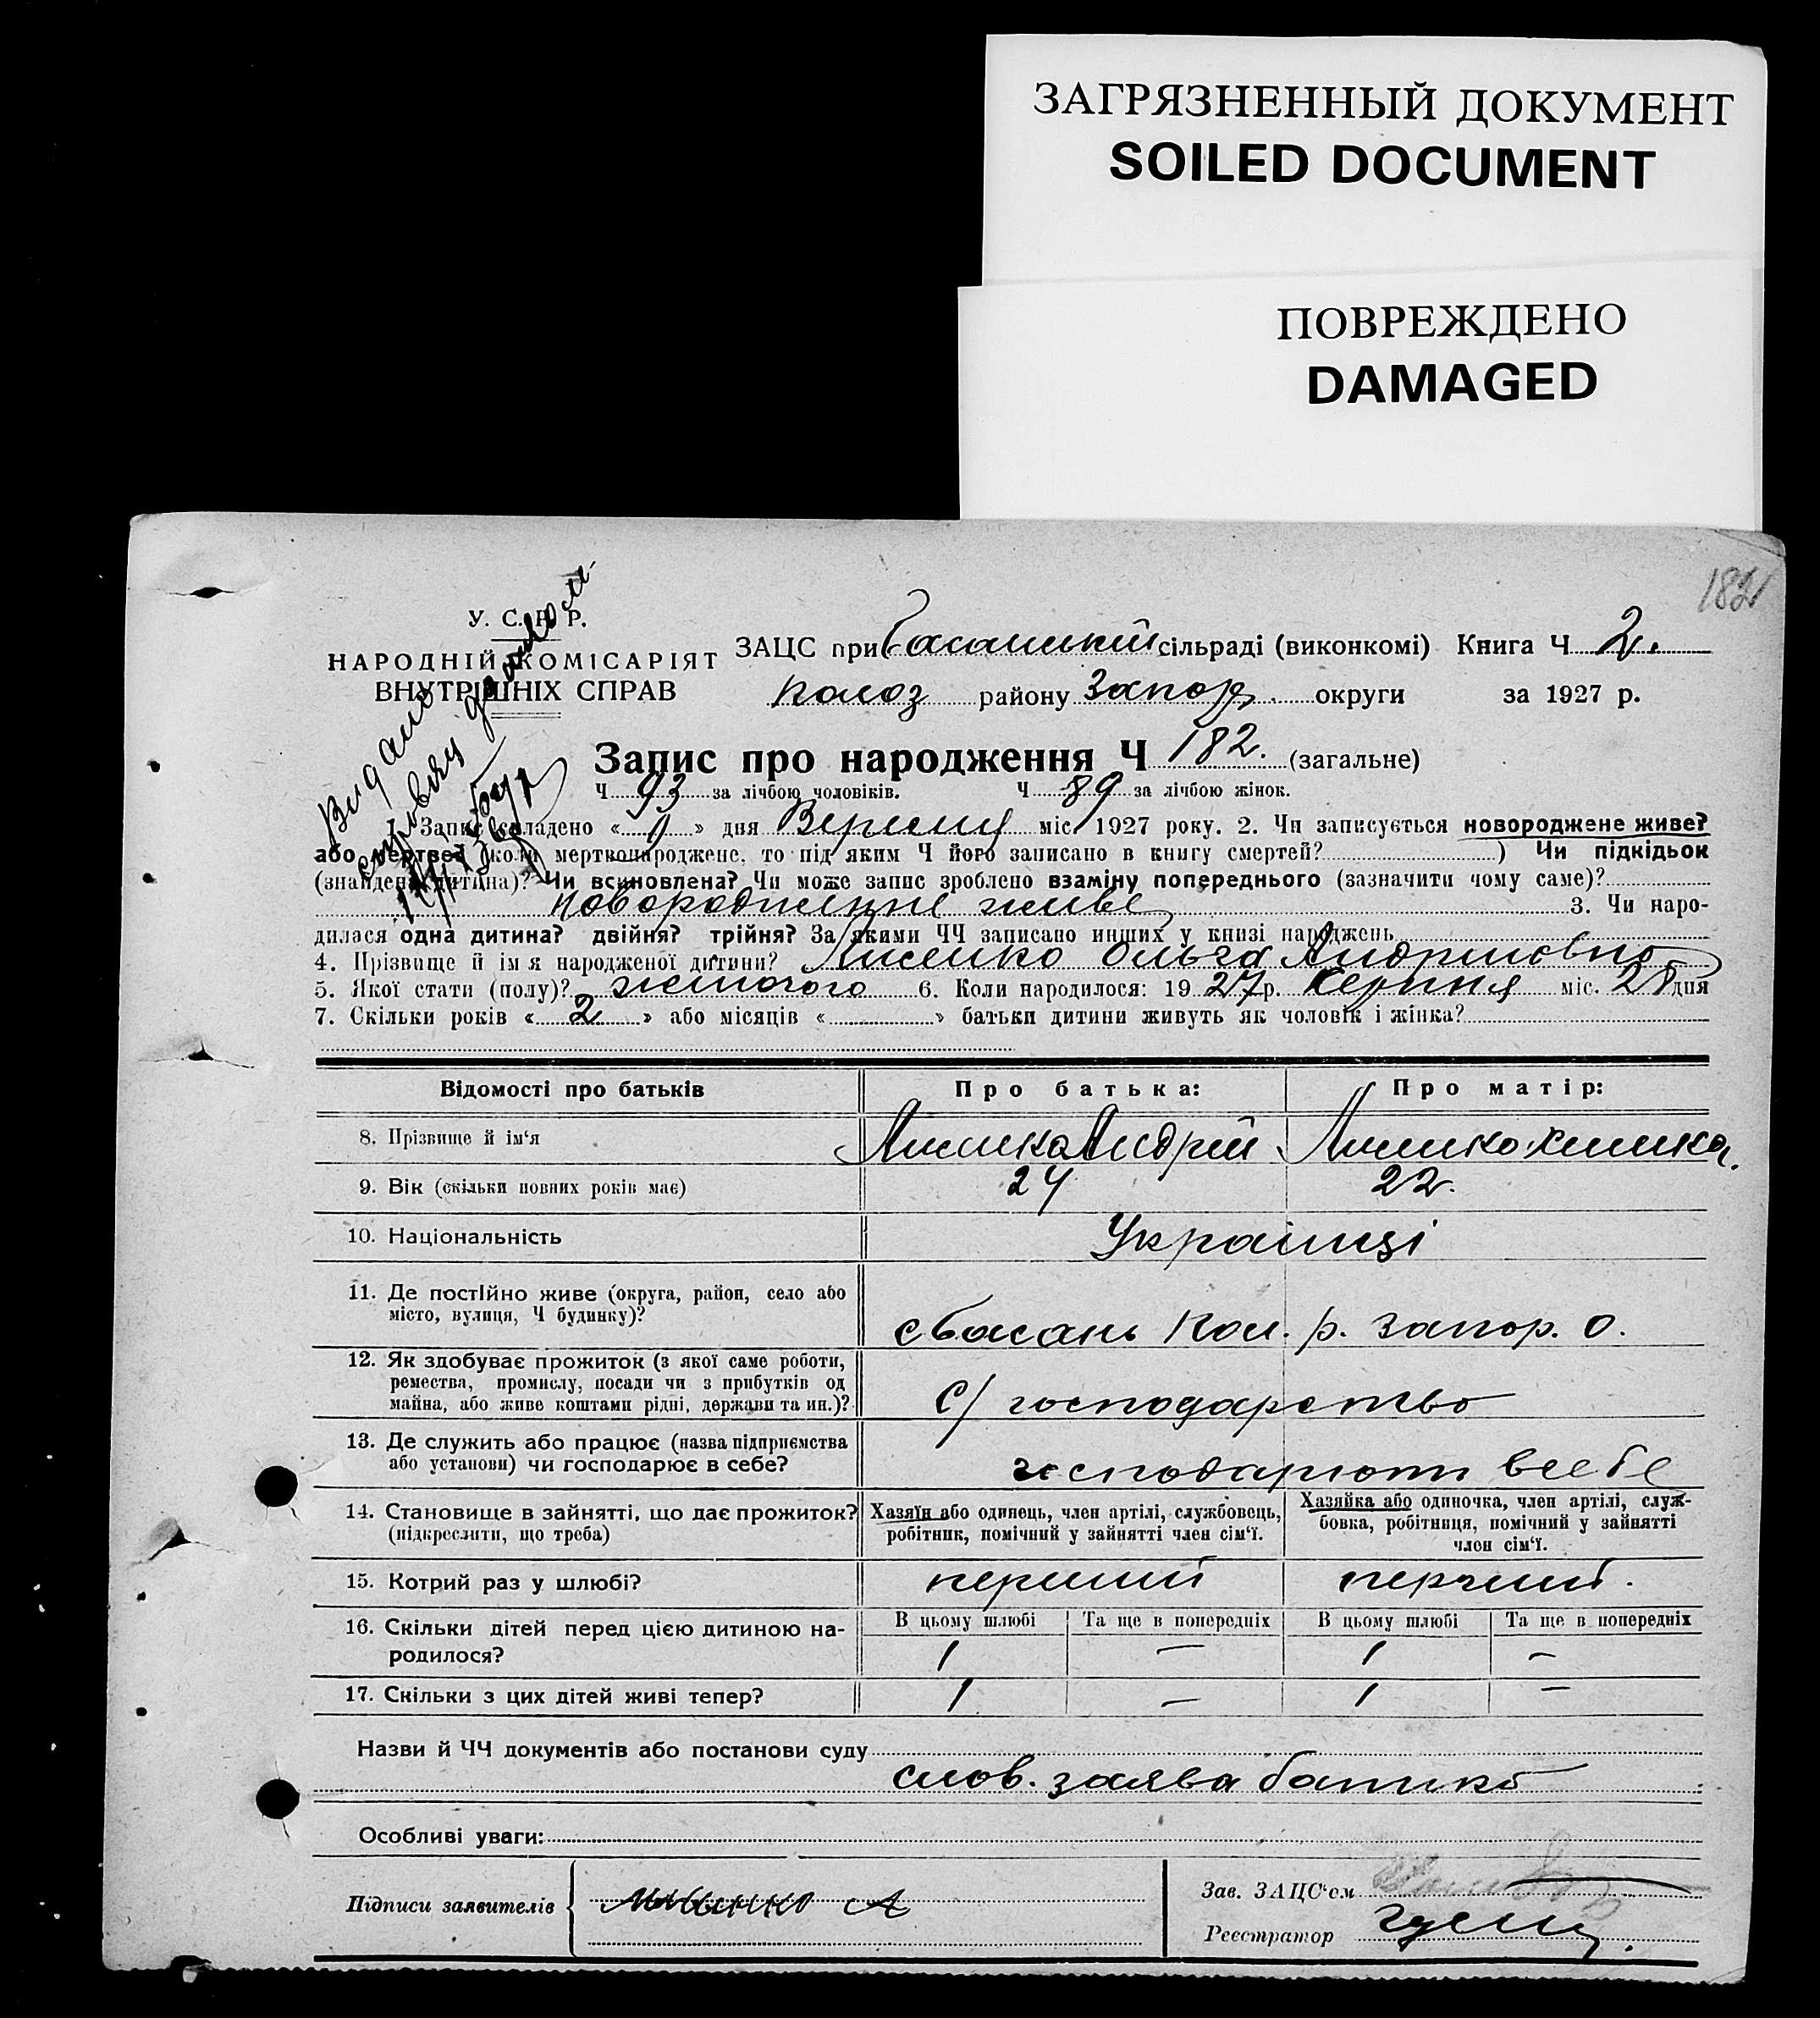 ЗАГРЯЗНЕННЫЙ ДОКУМЕНТ
SOILED DOCUMENT
ПОВРЕЖДЕНО
DAMAGED
182
У. С. Р. Р.
НАРОДНІЙ КОМІСАРІЯТ
ВНУТРІШНІХ СПРАВ
Видано
ЗАЦС при Басанській сільраді (виконкомі) Книга Ч 2.
району Запор. округи за 1927 р.
Запис про народження Ч 182. (загальне)
Ч 93 за лічбою чоловіків. Ч 89 за лічбою жінок.
1. Запис складено « 9 » дня Вересня міс. 1927 року. 2. Чи записується новороджене живе?
або мертве? (коли мертвонароджене, то під яким Ч його записано в книгу смертей? ) Чи підкідьок
(знайдена дитина)? Чи всиновлена? Чи може запис зроблено взаміну попереднього (зазначити чому саме)?
новородженне живе 3. Чи наро-
дилася одна дитина? двійня? трійня? За якими ЧЧ записано инших у книзі народжень
4. Прізвище й ім'я народженої дитини? Лисенко Ольга Андриевна
5. Якої статі (полу)? жіночого 6. Коли народилося: 19 27 р. Серпня міс. 28 дня
7. Скільки років « 2 » або місяців « » батьки дитини живуть як чоловік і жінка?
Відомості про батьків Про батька: Про матір:
8. Прізвище й ім'я Лисенко Андрій Лисенко
9. Вік (скільки повних років має) 24 22.
10. Національність Українці
11. Де постійно живе (округа, район, село або
місто, вулиця, Ч будинку)? с Басань р. Запор. о.
12. Як здобуває прожиток (з якої саме роботи,
ремества, промислу, посади чи з прибутків од
майна, або живе коштами рідні, держави та ин.)? С/господарство
13. Де служить або працює (назва підприємства
або установи) чи господарює в себе? господарюют в себе
14. Становище в зайнятті, що дає прожиток? Хазяїн або одинець, член артілі, службовець, Хазяйка або одиночка, член артілі, служ-
(підкреслити, що треба) робітник, помічний у зайнятті член сім'ї. бовка, робітниця, помічний у зайнятті
член сім'ї.
15. Котрий раз у шлюбі? перший перший.
16. Скільки дітей перед цією дитиною на- В цьому шлюбі Та ще в попередніх В цьому шлюбі Та ще в попередніх
родилося? 1 — 1 —
17. Скільки з цих дітей живі тепер? 1 — 1 —
Назви й ЧЧ документів або постанови суду
слов. заява батька
Особливі уваги:
Підписи заявителів Лисенко А
Зав. ЗАЦС'ом
Реєстратор